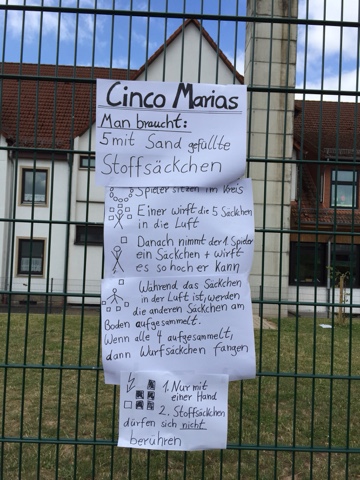 Cinco Marias
Man braucht:
5 mit Sand gefüllte
Stoffsäckchen
Spieler sitzen im Kreis
Einer wirft die 5 Säckchen
in die Luft
Danach nimmt der 1 Spieler
ein Säckchen + wirft
es so hoch er kann
Während das Säckchen
in der Luft ist, werden
die anderen Säckchen am
Boden aufgesammelt.
Wenn alle 4 aufgesammelt,
dann Wurfsäckchen fangen
1. Nur mit
einer Hand
2. Stoffsäckchen
dürfen sich nicht
berühren